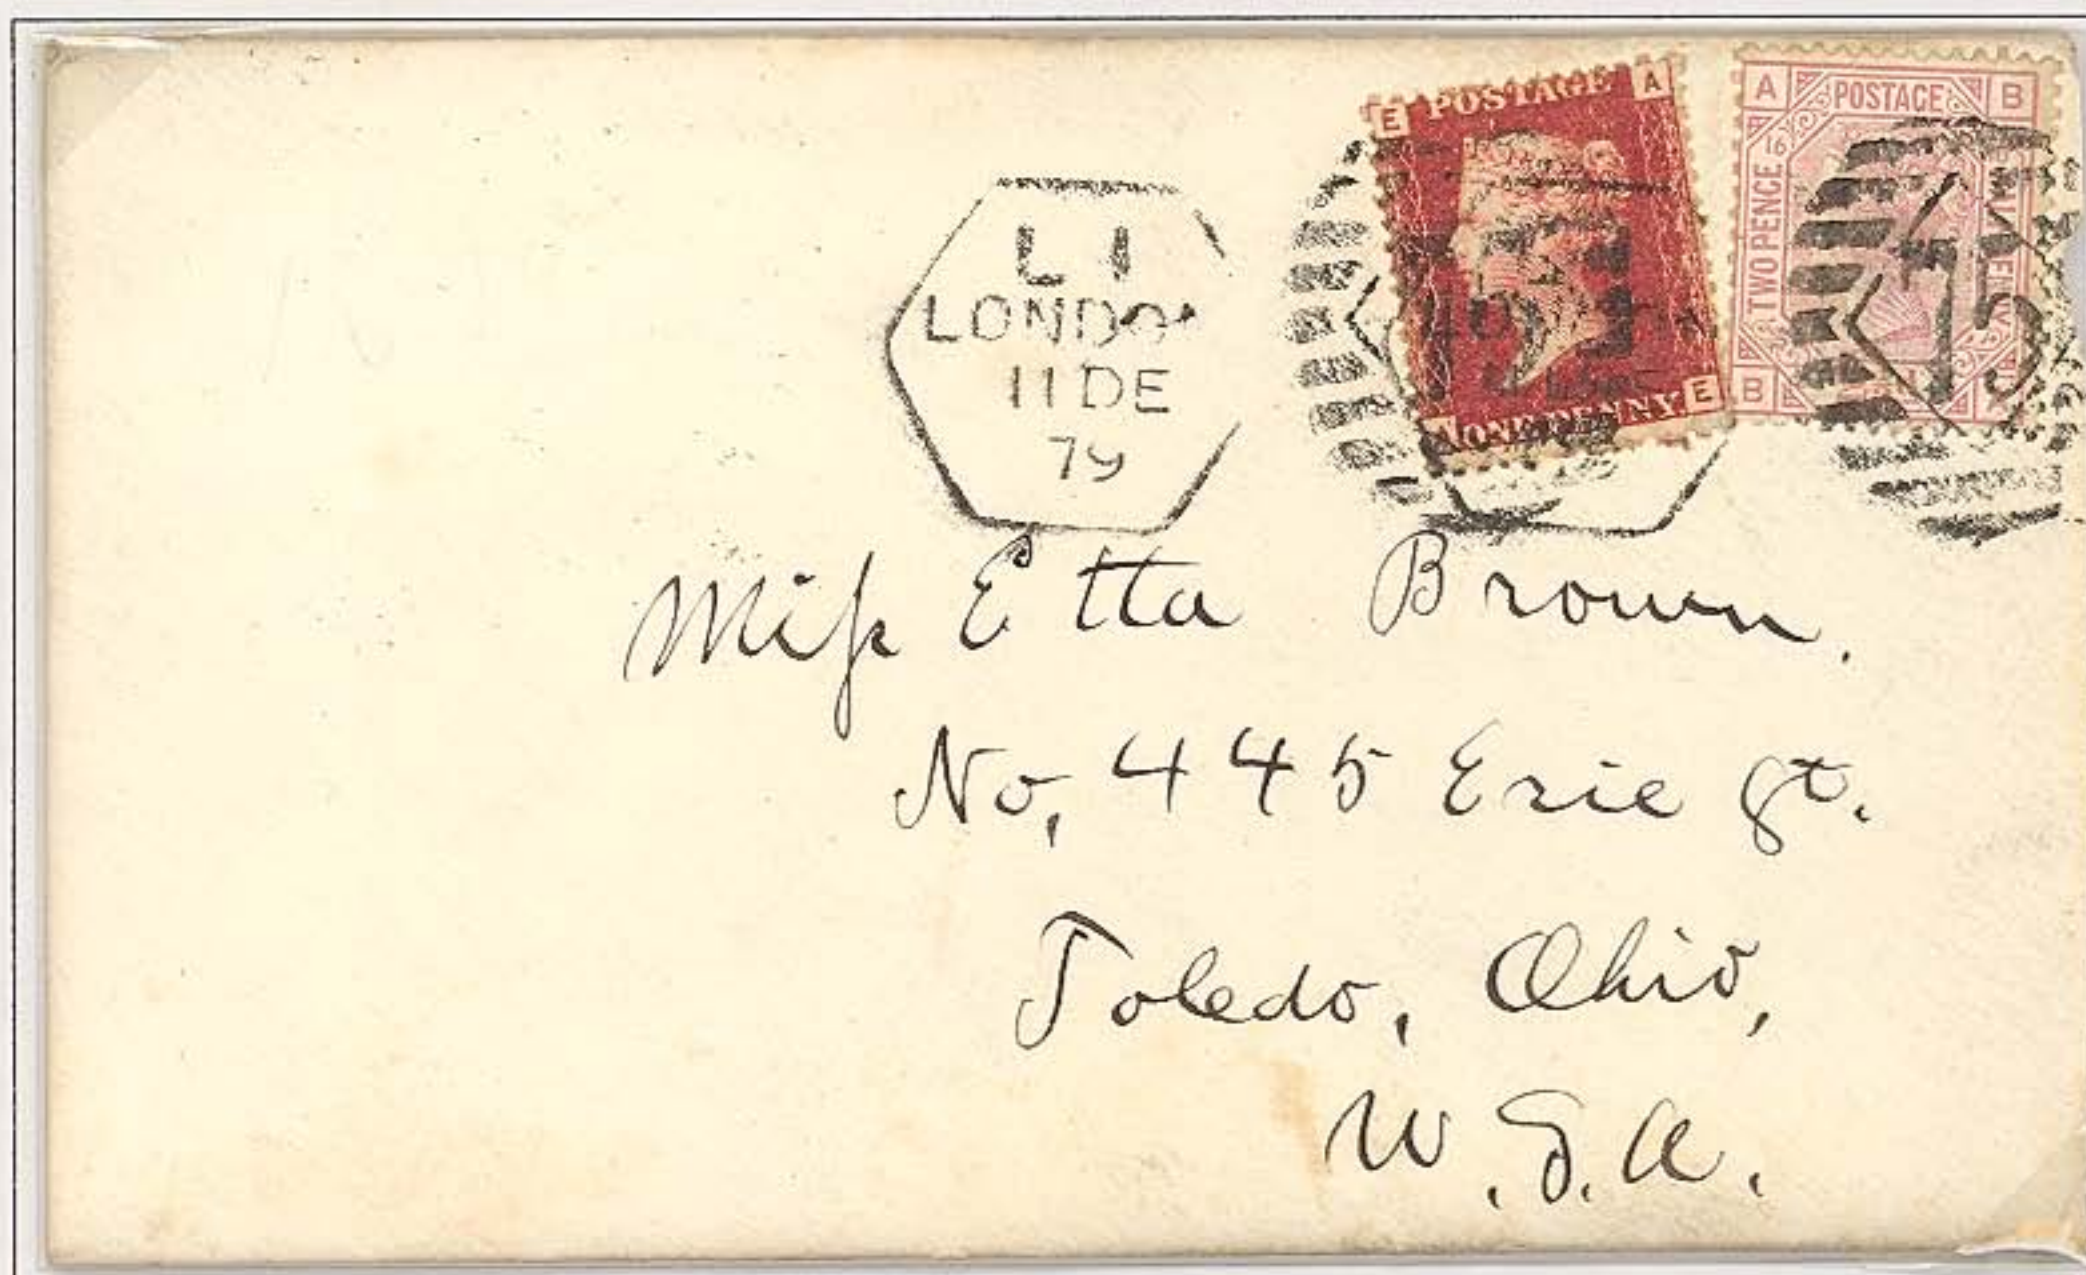 L 1
LONDO
11 DE
79
E POSTAGE A
ONE PENNY E
A POSTAGE B
16
TWO PENCE
B
15
Miss Etta Brown.
No, 445 Erie St.
Toledo, Ohio,
U.S.A.